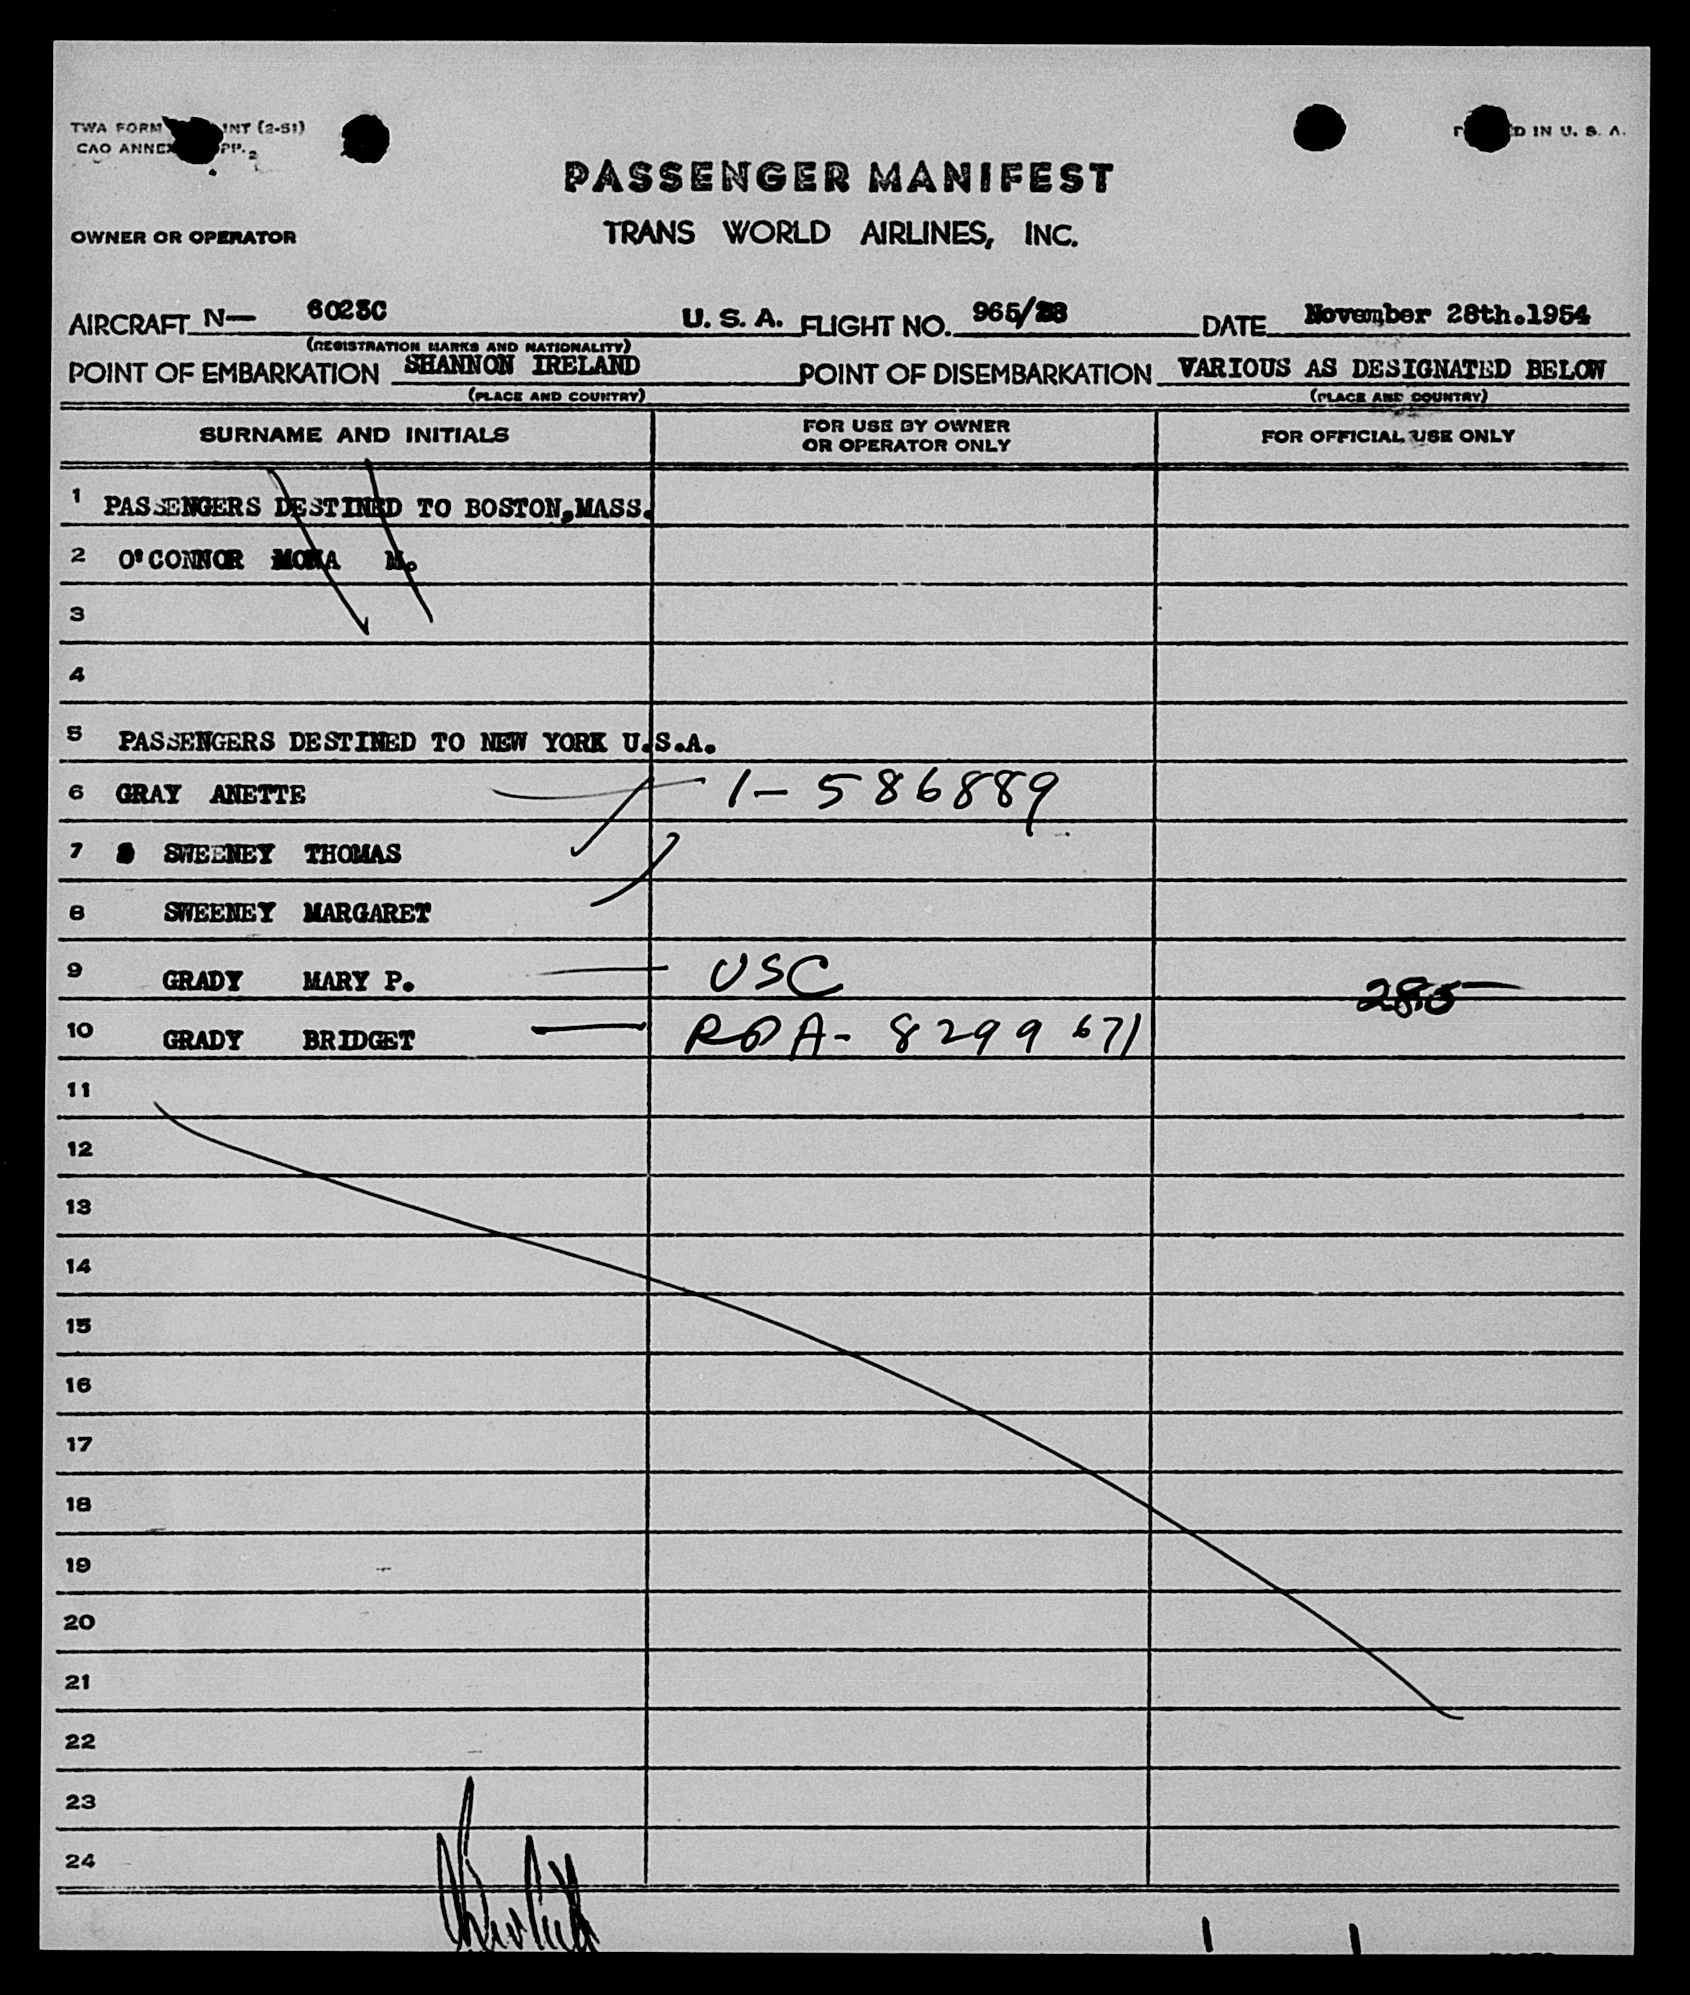 TWA FORM INT (2-51)
PRINTED IN U. S. A.
PASSENGER MANIFEST
OWNER OR OPERATOR
TRANS WORLD AIRLINES, INC.
AIRCRAFT N— 6023C U. S. A. FLIGHT NO. 965/28 DATE November 28th.1954
(REGISTRATION MARKS AND NATIONALITY)
POINT OF EMBARKATION SHANNON IRELAND POINT OF DISEMBARKATION VARIOUS AS DESIGNATED BELOW
(PLACE AND COUNTRY) (PLACE AND COUNTRY)
SURNAME AND INITIALS FOR USE BY OWNER OR OPERATOR ONLY FOR OFFICIAL USE ONLY
1 PASSENGERS DESTINED TO BOSTON,MASS.
2 O'CONNOR MONA M.
3
4
5 PASSENGERS DESTINED TO NEW YORK U.S.A.
6 GRAY ANETTE 1- 586889
7 SWEENEY THOMAS
8 SWEENEY MARGARET
9 GRADY MARY P. USC
10 GRADY BRIDGET ROA- 8299671
11
12
13
14
15
16
17
18
19
20
21
22
23
24